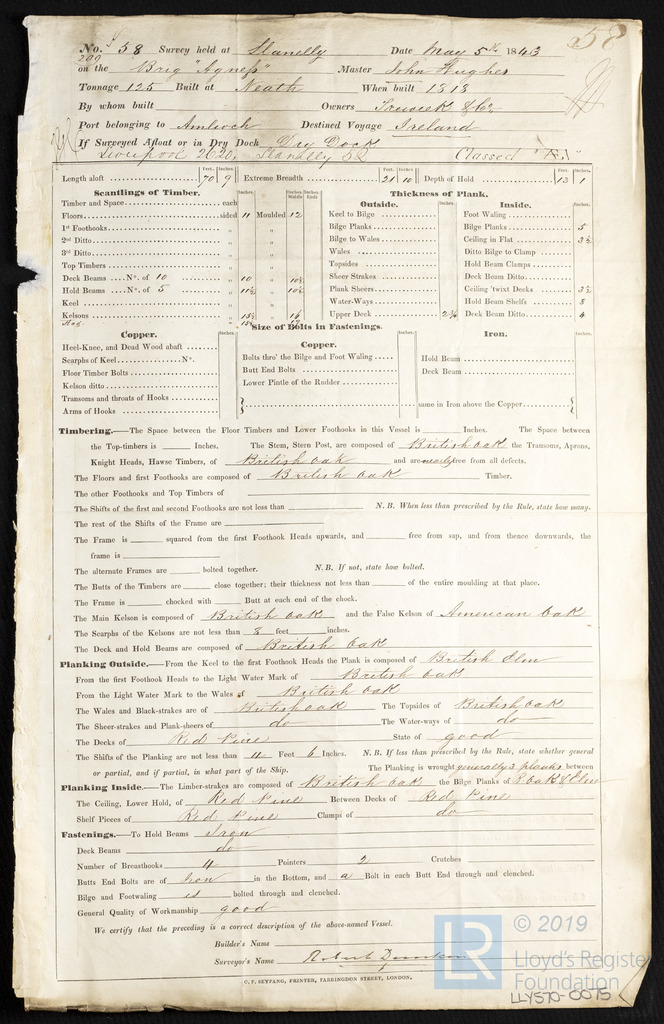 58
No. 58 Survey held at Llanelly Date May 5th 1843
209
on the Brig "Agness" Master John Hughes
Tonnage 125 Built at Neath When built 1818
By whom built Owners & Co
Port belonging to Amlwch Destined Voyage Ireland
If Surveyed Afloat or in Dry Dock Dry Dock
Liverpool 2620, Llanelly 58 Classed "E"
Length aloft Feet. 70 Inches. 9 Extreme Breadth Feet. 21 Inches. 10 Depth of Hold Feet. 13 Inches. 1
Scantlings of Timber.
Inches. Inches. Middle Inches. Ends
Timber and Space each
Floors sided 11 Moulded 12
1st Foothooks " "
2nd Ditto " "
3rd Ditto " "
Top Timbers " "
Deck Beams No. of 10 " 10 " 10½
Hold Beams No. of 5 " 11½ " 10½
Keel " "
Kelsons " 15½ "
Thickness of Plank.
Outside.
Inches.
Keel to Bilge
Bilge Planks
Bilge to Wales
Wales
Topsides
Sheer Strakes
Plank Sheers
Water-Ways
Upper Deck 2¾
Inside.
Inches.
Foot Waling
Bilge Planks 5
Ceiling in Flat 3½
Ditto Bilge to Clamp
Hold Beam Clamps
Deck Beam Ditto
Ceiling 'twixt Decks 3½
Hold Beam Shelfs 8
Deck Beam Ditto 4
Size of Bolts in Fastenings.
Copper.
Inches.
Heel-Knee, and Dead Wood abaft
Scarphs of Keel No.
Floor Timber Bolts
Kelson ditto
Transoms and throats of Hooks
Arms of Hooks
Copper.
Inches.
Bolts thro' the Bilge and Foot Waling
Butt End Bolts
Lower Pintle of the Rudder
Iron.
Inches.
Hold Beam
Deck Beam
same in Iron above the Copper
Timbering.—The Space between the Floor Timbers and Lower Foothooks in this Vessel is Inches. The Space between
the Top-timbers is Inches. The Stem, Stern Post, are composed of British oak the Transoms, Aprons,
Knight Heads, Hawse Timbers, of British oak and are nearly free from all defects.
The Floors and first Foothooks are composed of British oak Timber.
The other Foothooks and Top Timbers of
The Shifts of the first and second Foothooks are not less than N.B. When less than prescribed by the Rule, state how many.
The rest of the Shifts of the Frame are
The Frame is squared from the first Foothook Heads upwards, and free from sap, and from thence downwards, the
frame is
The alternate Frames are bolted together. N.B. If not, state how bolted.
The Butts of the Timbers are close together; their thickness not less than of the entire moulding at that place.
The Frame is chocked with Butt at each end of the chock.
The Main Kelson is composed of British oak and the False Kelson of American Oak
The Scarphs of the Kelsons are not less than 8 feet inches.
The Deck and Hold Beams are composed of British Oak
Planking Outside.—From the Keel to the first Foothook Heads the Plank is composed of British Elm
From the first Foothook Heads to the Light Water Mark of British oak
From the Light Water Mark to the Wales of British oak
The Wales and Black-strakes are of British oak The Topsides of British oak
The Sheer-strakes and Plank-sheers of do The Water-ways of do
The Decks of Red Pine State of good
The Shifts of the Planking are not less than 4 Feet 6 Inches. N.B. If less than prescribed by the Rule, state whether general
or partial, and if partial, in what part of the Ship. The Planking is wrought generally 3 planks between
Planking Inside.—The Limber-strakes are composed of British oak the Bilge Planks of B oak & Elm
The Ceiling, Lower Hold, of Red Pine Between Decks of Red Pine
Shelf Pieces of Red Pine Clamps of do
Fastenings.—To Hold Beams Iron
Deck Beams do
Number of Breasthooks 4 Pointers 2 Crutches
Butts End Bolts are of Iron in the Bottom, and a Bolt in each Butt End through and clenched.
Bilge and Footwaling is bolted through and clenched.
General Quality of Workmanship good
We certify that the preceding is a correct description of the above-named Vessel.
Builder's Name
Surveyor's Name Robert
C. F. SEYFANG, PRINTER, FARRINGDON STREET, LONDON.
LR © 2019
Lloyd's Register
Foundation
LLY570-0075